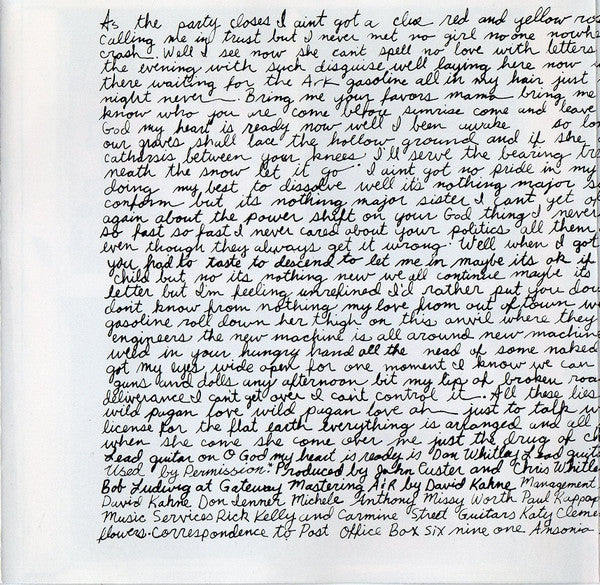 As the party closes I aint got a clue red and yellow ros
calling me in trust but I never met no girl no one nowhe
crash. Well I see now she cant spell no love with letters
the evening with such disguise well laying here now
there waiting for the Ark gasoline all in my hair just
night never. Bring me your favors mama bring me
know who you are come before sunrise come and leave
God my heart is ready now well I been awake so lon
our graves shall lace the hollow ground and if she
catharsis between your knees I'll serve the bearing tre
neath the snow let it go I aint got no pride in my
doing my best to dissolve well its nothing major s
conform but its nothing major sister I cant yet
again about the power shift on your God thing I never
so fast so fast I never cared about your politics all them
even though they always get it wrong. Well when I got
you had to taste to descend to let me in maybe its ok if
child but no its nothing new we all continue maybe its
letter but I'm feeling unrefined I'd rather put you dow
dont know from nothing my love from out of town w
gasoline roll down her thigh on this anvil where they
engineers the new machine is all around new machine
weld in your hungry hand all the need of some naked
got my eyes wide open for one moment I know we can
guns and dolls any afternoon bit my lip of broken roa
deliverance I cant get over I cant control it. All these lies
wild pagan love wild pagan love ah just to talk w
license for the flat earth everything is arranged and all
when she come she come over me just the drug of ch
Lead guitar on O God my heart is ready is Don Whitley Lead guita
Used by Permission. Produced by John Custer and Chris Whitle
Bob Ludwig at Gateway Mastering A&R by David Kahne Management
David Kahne Don Ienner Michele Anthony Missy Worth Paul Rappap
Music Services Rick Kelly and Carmine Street Guitars Katy Cleme
flowers. Correspondence to Post Office Box Six nine one Ansonia